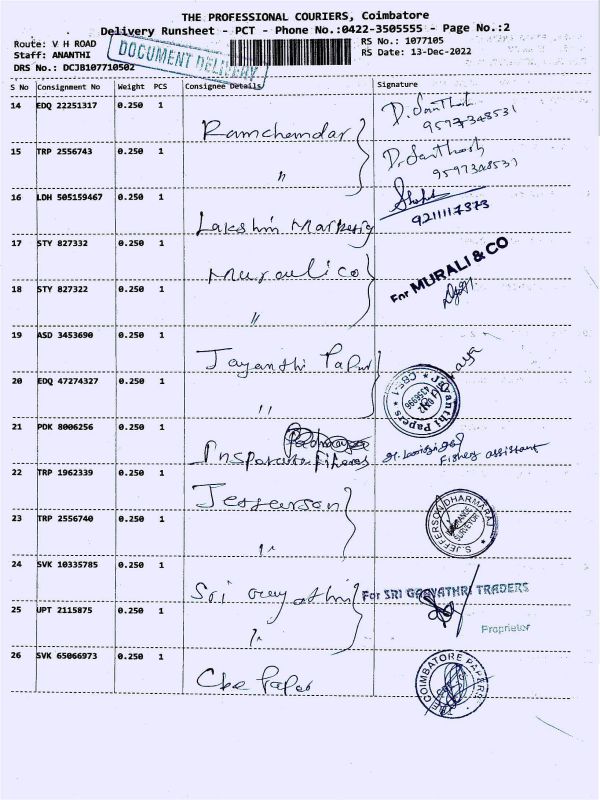 THE PROFESSIONAL COURIERS, Coimbatore
Delivery Runsheet - PCT - Phone No.:0422-3505555 - Page No.:2
Route: V H ROAD RS No.: 1077105
Staff: ANANTHI RS Date: 13-Dec-2022
DOCUMENT DELIVERY
DRS No.: DCJB107710502
S No Consignment No Weight PCS Consignee Details Signature
14 EDQ 22251317 0.250 1
Ramchandar D. Santhosh
9597348531
15 TRP 2556743 0.250 1
" D. Santhosh
9597348531
16 LDH 505159467 0.250 1
Lakshmi 9211117373
17 STY 827332 0.250 1
Murali co For MURALI & CO
18 STY 827322 0.250 1
"
19 ASD 3453690 0.250 1
Jayanthi Paper
20 EDQ 47274327 0.250 1
" Jayanthi Papers * CBE-1 *
21 PDK 8006256 0.250 1
Fishery assistant
22 TRP 1962339 0.250 1
Jefferson
23 TRP 2556740 0.250 1
" S.JEFFERSON DHARMARAJ
INSURANCE
SURVEYOR
24 SVK 10335785 0.250 1
Sri Gayathri For SRI GAYATHRI TRADERS
25 UPT 2115875 0.250 1
" Proprietor
26 SVK 65066973 0.250 1
Cbe Paper THE COIMBATORE PAPERS